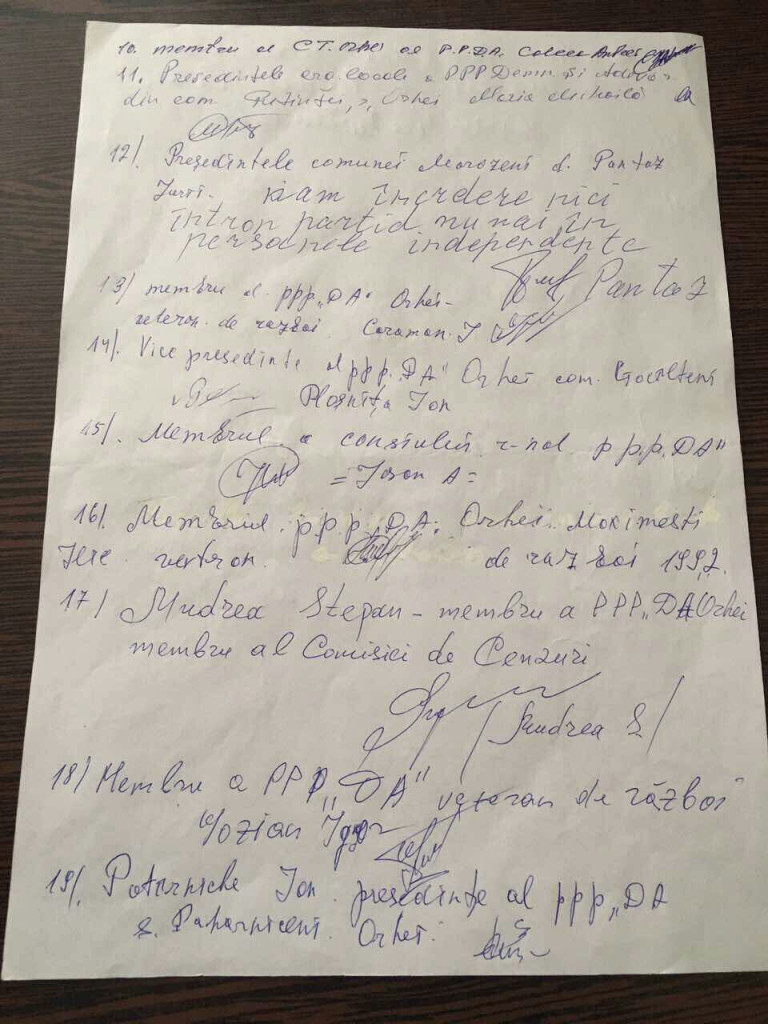 10. membru al C.T. Orhei al P.P.DA.
11. Președintele org. locale a PPP Demn. și
din com. Orhei Maria Mihailă
12/. Președintele comunei Morozeni d. Pantaz
Iurii. N-am încrdere nici
intron partid numai în
persoanele independente
Pantaz
13/ membru al ppp „DA" Orhei-
veteran de război Caraman I
14/. Vice președinte al ppp. „DA" Orhei com.
Plosnița Ion
15/. Membrul a consiului r-nal p.p.p. „DA"
= A =
16/. Membrul p.p.p. „DA". Orhei.
de război 1992.
17/ Mudrea Stepan - membru a PPP „DA Orhei
membru al Comisiei de Cenzuri
/ Mudrea S /
18/ Membru a PPP „DA" veteran de război
Igor
19/. Potarniche Ion președinte al ppp „DA
s. Paharniceni. Orhei.